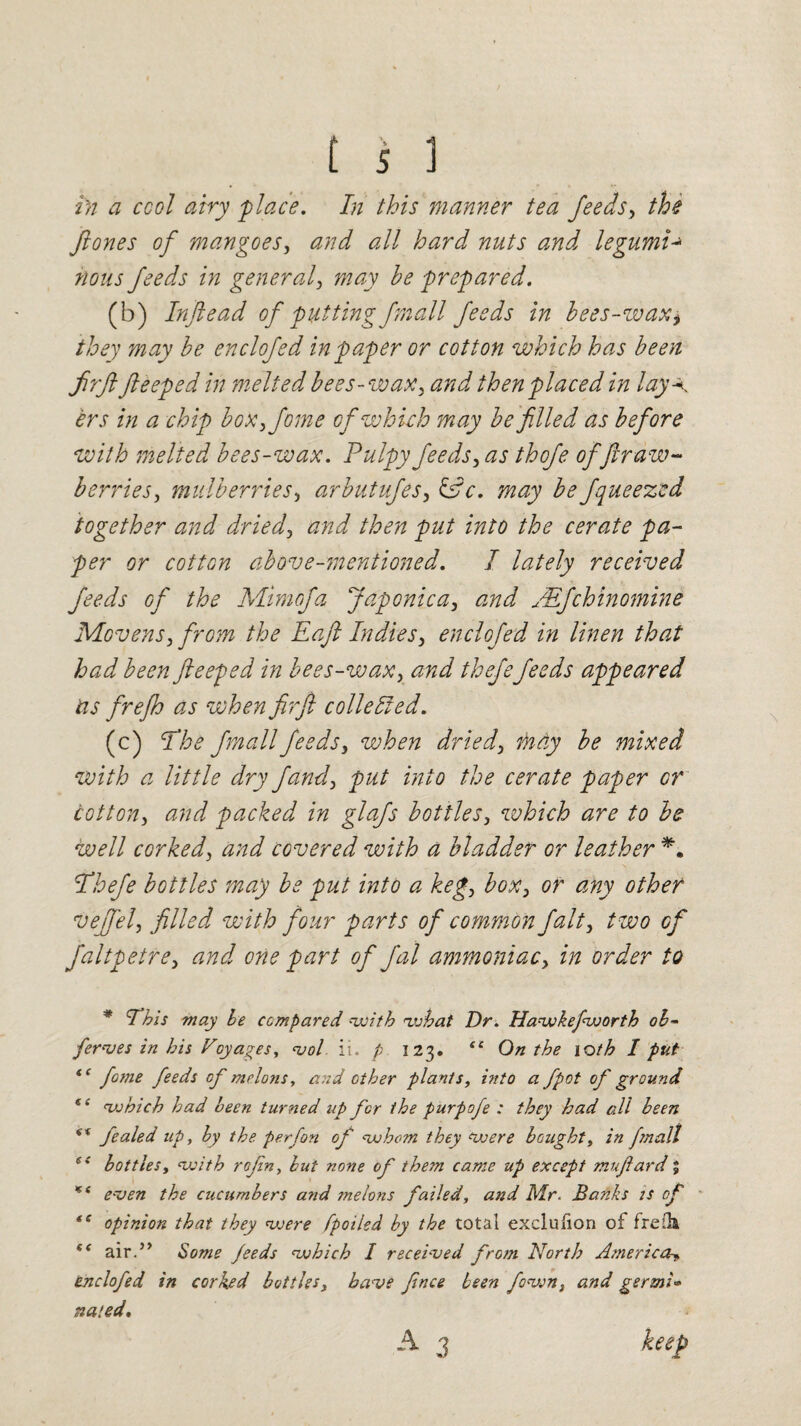 [ 5 ]
in a cool airy place. In this manner tea ſeeds, the
ſtones of mangoes, and all hard nuts and legumi-
nous ſeeds in general, may be prepared.
(b) Inſtead of putting ſmall ſeeds in bees-wax,
they may be encloſed in paper or cotton which has been
firſt ſteeped in melted bees-wax, and then placed in lay-
ers in a chip box, ſome of which may be filled as before
with melted bees-wax. Pulpy ſeeds, as thoſe of ſtraw-
berries, mulberries, arbutuſes, &c. may be ſqueezed
together and dried, and then put into the cerate pa-
per or cotton above-mentioned. I lately received
ſeeds of the Mimoſa Japonica, and Æſchinomine
Movens, from the Eaſt Indies, encloſed in linen that
had been ſteeped in bees-wax, and theſe ſeeds appeared
as freſh as when firſt collected.
(c) The ſmall ſeeds, when dried, may be mixed
with a little dry ſand, put into the cerate paper or
cotton, and packed in glaſs bottles, which are to be
well corked, and covered with a bladder or leather *.
Theſe bottles may be put into a keg, box, or any other
veſſel, filled with four parts of common ſalt, two of
ſaltpetre, and one part of ſal ammoniac, in order to
* This may be compared with what Dr. Hawkeſworth ob-
ſerves in his Voyages, vol. ii. p. 123. “ On the 10th I put
“ ſome ſeeds of melons, and other plants, into a ſpot of ground
“ which had been turned up for the purpoſe : they had all been
“ ſealed up, by the perſon of whom they were bought, in ſmall
“ bottles, with roſin, but none of them came up except muſtard ;
“ even the cucumbers and melons failed, and Mr. Banks is of
“ opinion that they were ſpoiled by the total excluſion of freſh
“ air.” Some ſeeds which I received from North America,
encloſed in corked bottles, have ſince been ſown, and germi-
nated.
A 3 keep